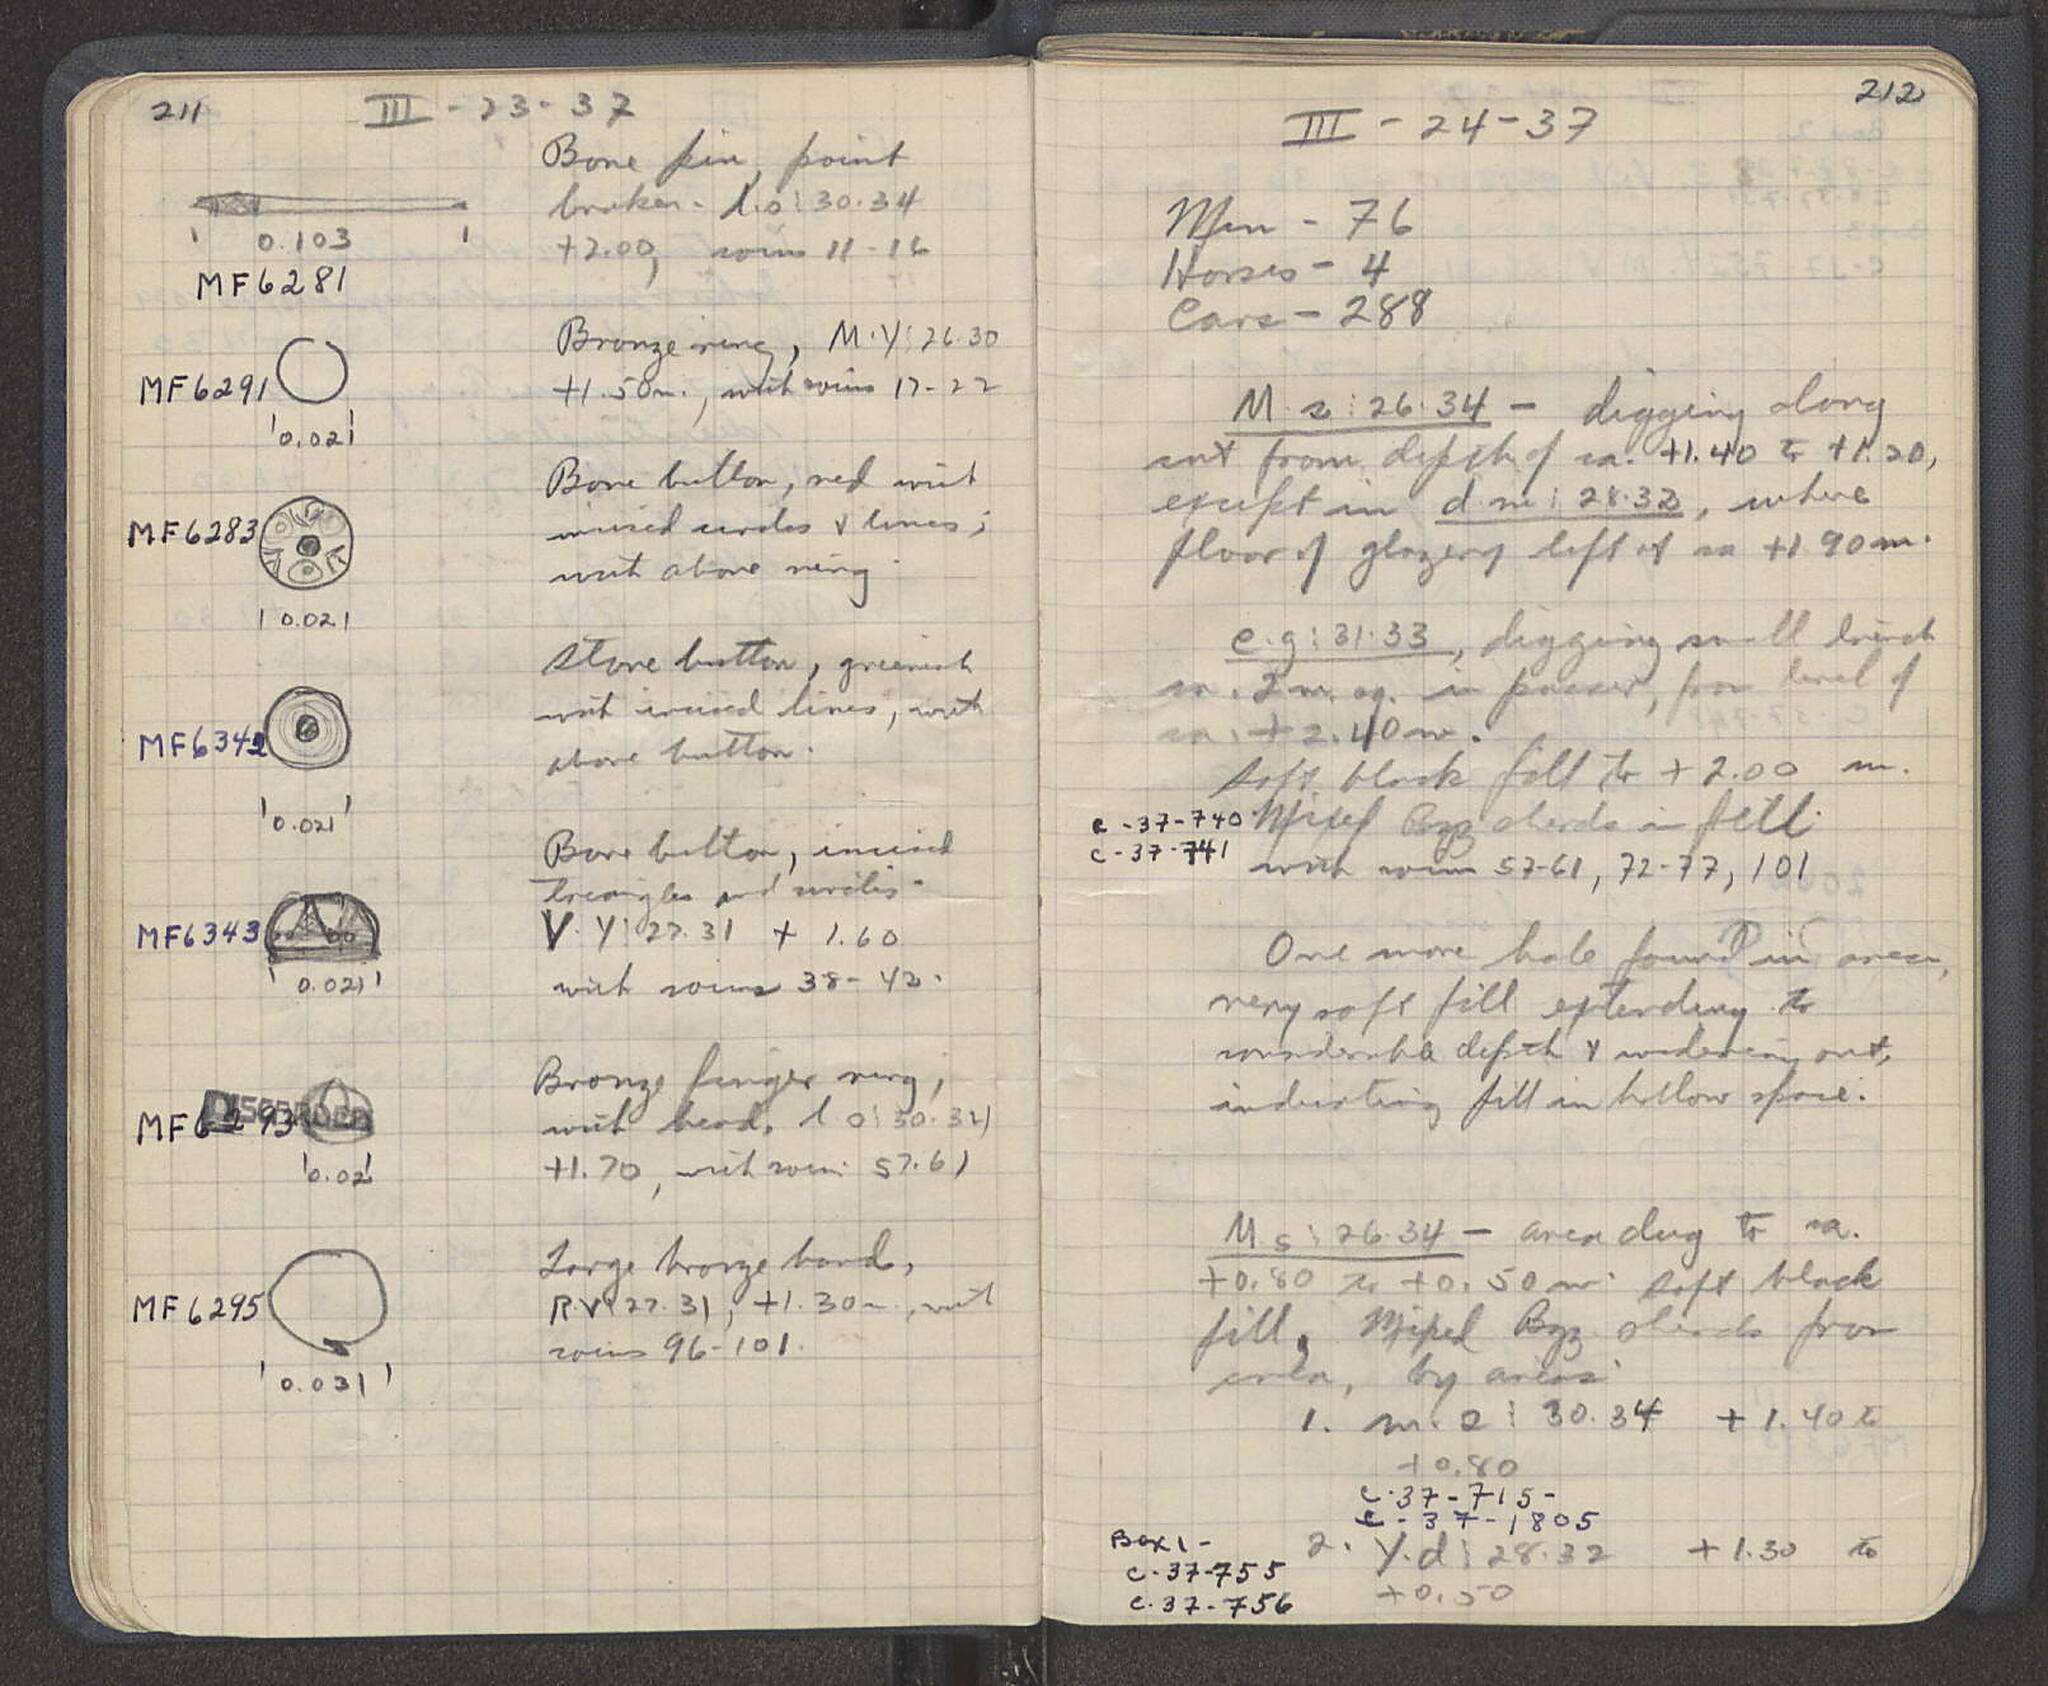 211
III - 23 - 37
Bone pin, point
broken - l.o : 30.34
0.103
+2.00, coins 11-16
MF6281
Bronze ring, M.Y : 26.30
MF6291
+1.50m., with coins 17-22
0.021
Bone button, red with
MF6283
incised circles & lines;
with above ring.
0.021
Stone button, greenish
with incised lines, with
MF6342
above button.
0.021
Bone button, incised
triangles and circles.
MF6343
V.Y : 27.31 + 1.60
0.021
with coins 38-42.
Bronze finger ring,
DISCARDED
MF6293
with bead, l.o : 30.34
0.02
+1.70, with coins 57-61
Large bronze band,
MF6295
R.V : 27.31, +1.30m, with
coins 96-101.
0.031
212
III - 24 - 37
Men - 76
Horses - 4
Cars - 288
M.s : 26.34 - digging along
cut from depth of ca. +1.40 to +1.20,
except in d.m : 28.32, where
floor of glazery left at ca +1.90m.
e.g : 31.33, digging small trench
ca. 2m. sq. in passer, from level of
ca. +2.40m.
soft black fill to +2.00 m.
C-37-740
Mixed Byz sherds in fill
C-37-741
with coins 57-61, 72-77, 101
One more hole found in area,
very soft fill extending to
considerable depth & widening out,
indicating fill in hollow space.
M.s : 26.34 - area dug to ca.
+0.80 to +0.50m. soft black
fill, Mixed Byz sherds from
area, by areas
1. m.s : 30.34 +1.40 to
+0.80
C-37-715-
C-37-1805
Box 1 -
2. Y.d : 28.32 +1.30 to
C-37-755
+0.50
C-37-756